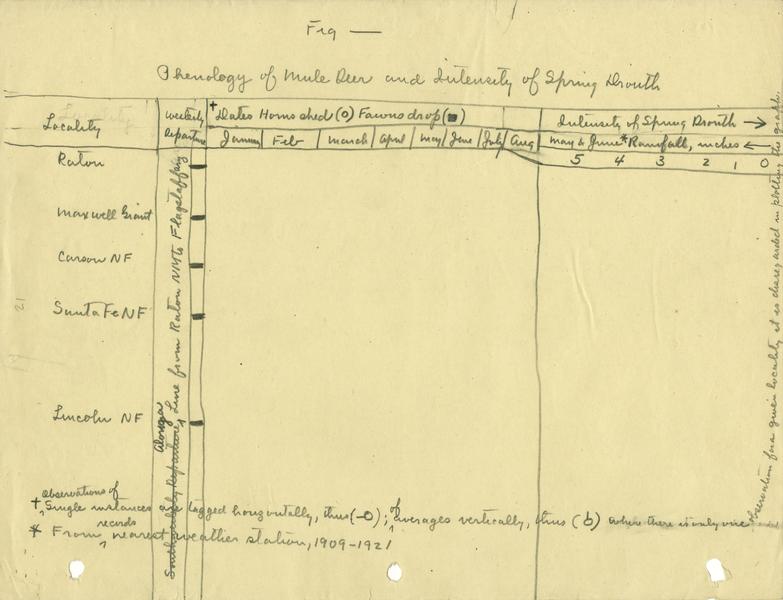 Fig —
Phenology of Mule Deer and Intensity of Spring Drouth
Locality
westerly
departure
† Dates Horns shed (o) Fawns drop (■)
January Feb March April May June July Aug
Intensity of Spring Drouth →
May & June * Rainfall, inches ←
5 4 3 2 1 0
Raton
Maxwell Grant
Carson NF
Santa Fe NF
Lincoln NF
Along a
Southwesterly Departure, Line from Raton NM to Flagstaff Ariz
† Observations of Single instances are tagged horizontally, thus (-o); of averages vertically, thus (b) where there is only one
observation for a given locality it is disregarded in plotting the graph.
* From records nearest weather station, 1909-1921
21